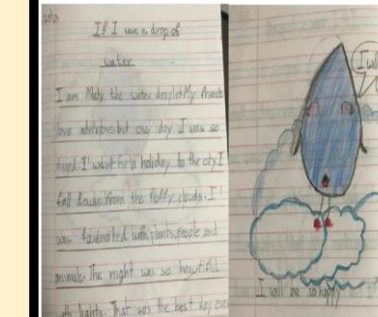 If I was a drop of
water
I am Molly the water droplet. My friends
love adventures but one day I was so
tired. I went for a holiday to the city. I
fell down from the fluffy clouds. I
was fasinated with plants, people and
animals. The night was so beautiful
with lights. That was the best day ever
I will be so happy